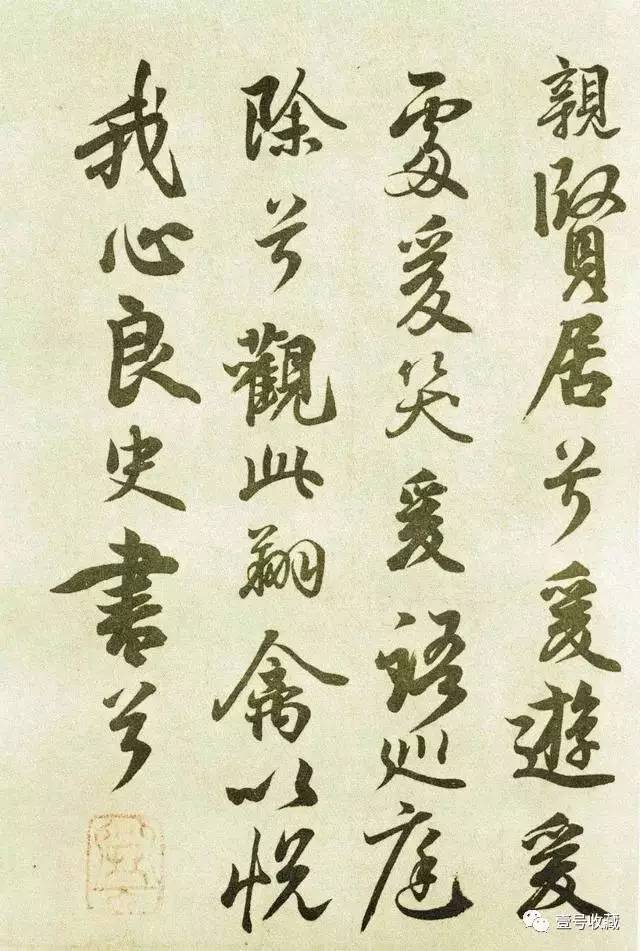 親賢居兮爰遊爰
處爰笑爰語巡庭
除兮觀此翔禽以悅
我心良史書兮
壹号收藏